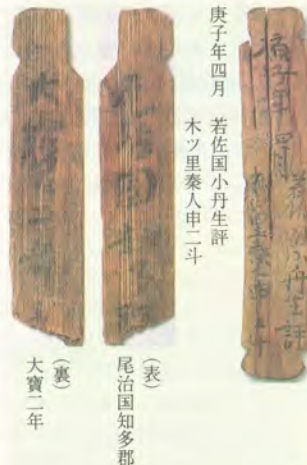 庚子年四月　若佐国小丹生評
木ツ里秦人申二斗
（表）
尾治国知多郡
（裏）
大寶二年